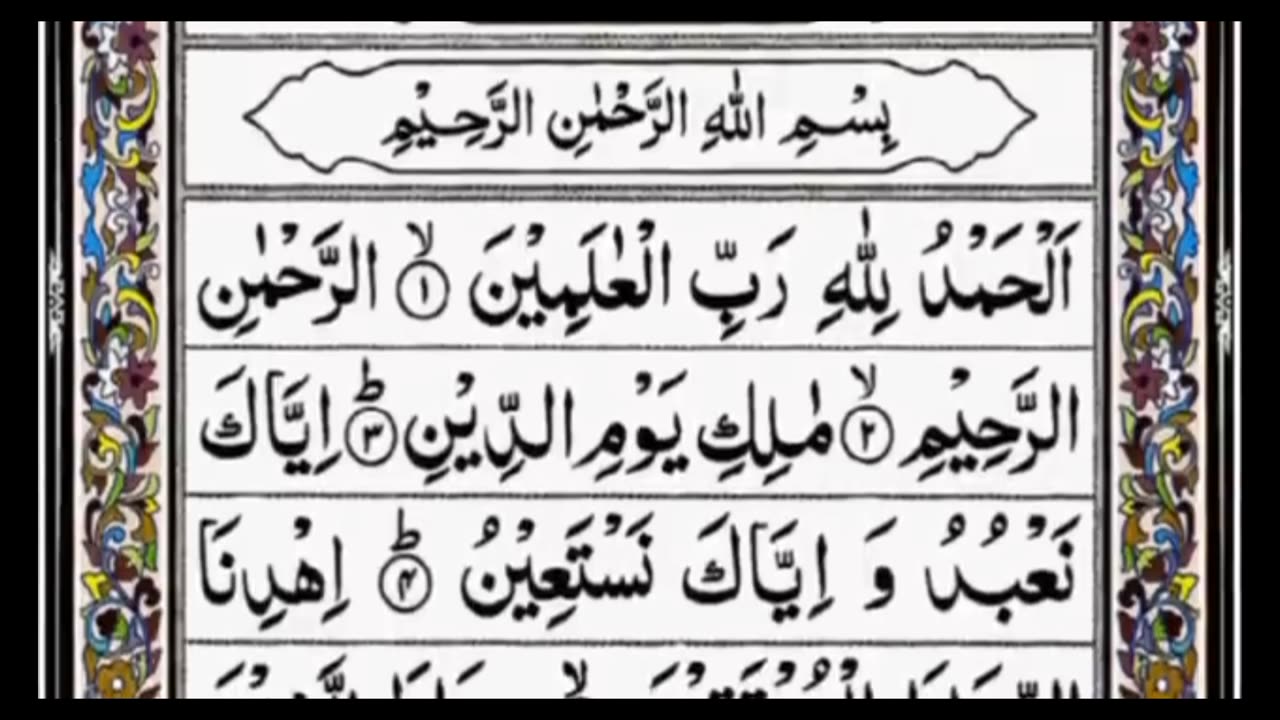 بِسْمِ اللهِ الرَّحْمٰنِ الرَّحِيْمِ
اَلْحَمْدُ لِلّٰهِ رَبِّ الْعٰلَمِيْنَ ۙ۱ الرَّحْمٰنِ
الرَّحِيْمِ ۙ۲ مٰلِكِ يَوْمِ الدِّيْنِ ؕ۳ اِيَّاكَ
نَعْبُدُ وَ اِيَّاكَ نَسْتَعِيْنُ ؕ۴ اِهْدِنَا